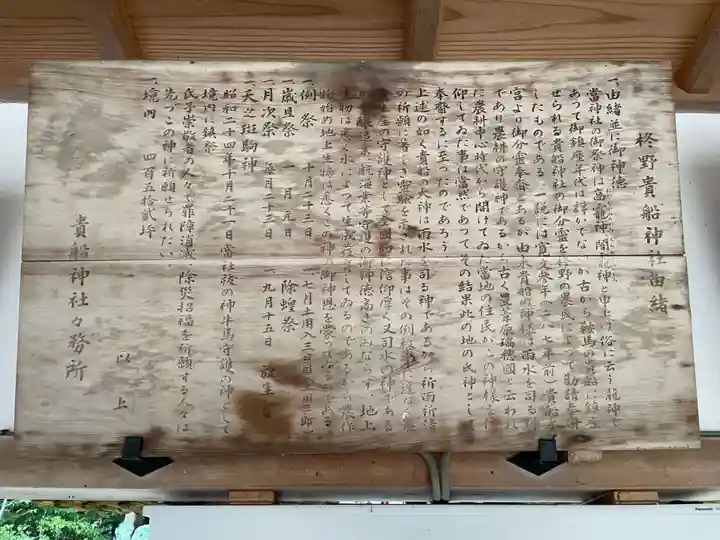 柊野貴船神社由緒
一、由緒並に御神徳
當神社の御祭神は高龗神、闇龗神と申上げ俗に云う龍神で
あって御鎮座年代は詳かでないが古から鞍馬の貴船に鎮座
せられる貴船神社の御分霊を柊野の農民によって勧請奉斎
したものである。一説には寛文参年
宮より御分霊奉斎とあるが由来貴船の神様は雨水を司る神
であり農耕の守護神であるから古く豊葦原瑞穂國と云われ
た農耕中心時代から開けてゐた當地の住民がこの神様を信
仰してゐた事は當然であってその結果此の地の氏神として
奉齋するに至ったのであろう
上述の如く貴船の大神は雨水を司る神であるから祈雨祈晴
の祈願に著しき霊験を示された事はその例枚挙に遑なく
生産の守護神として全国的に信仰厚く又司水の神である
から醸造業航海業等守護の御神徳高きのみならず、地上
生物は悉く水によって生成發育してゐるのであるから農作
物始め地上生物は悉くこの神の御神恩を蒙っている
一、例祭 十月二十三日 一、七月土用入三日目
一、歳旦祭 一月元旦 除蝗祭
一、月次祭 毎月二十三日 一、九月十五日 放生
一、天之斑駒神
昭和二十四年十月二十一日當社祓の神牛馬守護の神として
境内に鎮祭
氏子崇敬者の人々で罪障消滅、除災招福を祈願する人々は
先づこの神に祈願せられたい
一、境内 四百五拾貳坪
以上
貴船神社々務所
Panasonic